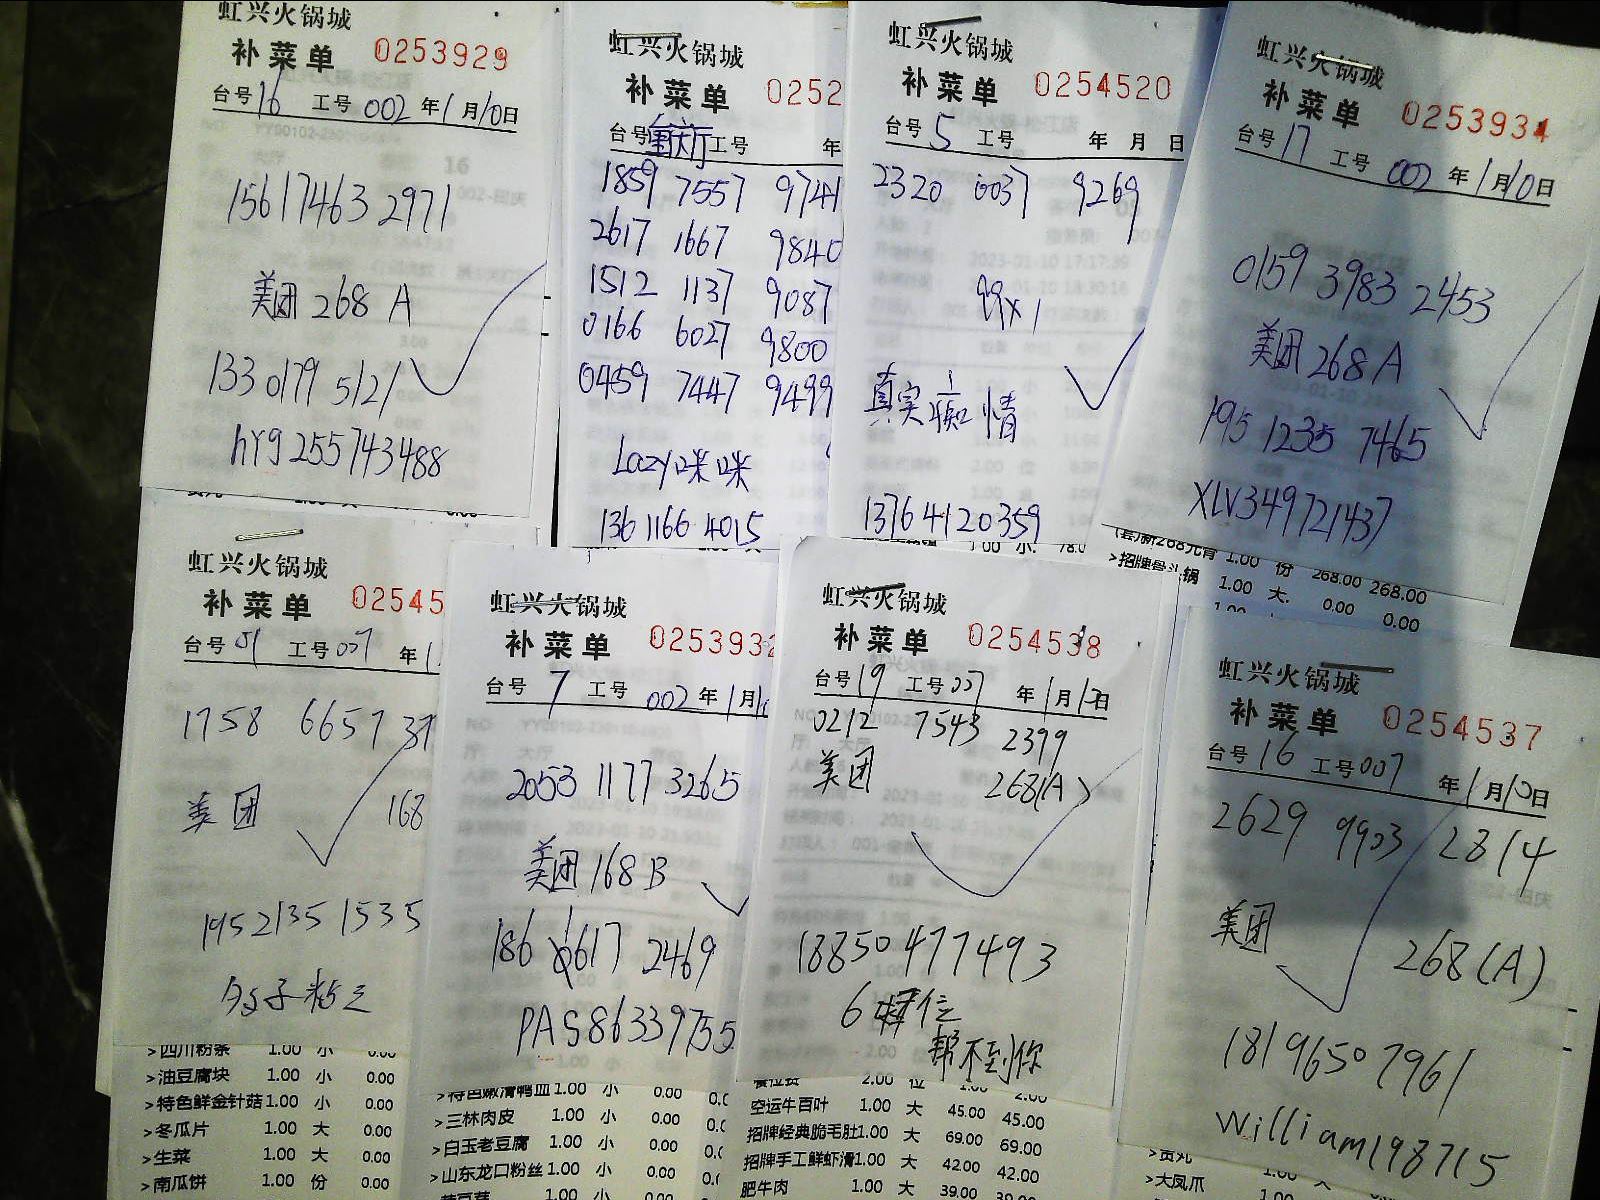 虹兴火锅城
补菜单 0253929
台号16 工号002 年1月10日
156174632971
美团268 A
133 0179 5121
hY9255743488
虹兴火锅城
补菜单 0252
台号 工号 年
1859 7557 9741
2617 1667 9840
1512 1137 9087
0166 6027 9800
0459 7447 9499
Lazy咪咪
136 1166 4015
虹兴火锅城
补菜单 0254520
台号5 工号 年 月 日
2320 0037 9269
99×1
真实痴情
13764120359
虹兴火锅城
补菜单 0253934
台号17 工号002 年1月10日
0159 3983 2453
美团268A
195 1235 7465
XLV349721437
(套)新268元套 1.00 份 268.00 268.00
>招牌骨头锅 1.00 大. 0.00 0.00
虹兴火锅城
补菜单 02545
台号01 工号007 年1
1758 6657 37
美团 168
19521351535
>四川粉条 1.00 小 0.00
>油豆腐块 1.00 小 0.00
>特色鲜金针菇1.00 小 0.00
>冬瓜片 1.00 大 0.00
>生菜 1.00 大 0.00
>南瓜饼 1.00 份 0.00
虹兴火锅城
补菜单 0253932
台号7 工号002 年1月1
2053 1177 3265
美团168B
186 6617 2469
PAS86339755
>特色嫩滑鸭血1.00 小 0.00
>三林肉皮 1.00 小 0.00
>白玉老豆腐 1.00 小 0.00
>山东龙口粉丝1.00 小 0.00
1.00 小 0.00
虹兴火锅城
补菜单 0254538
台号19 工号007 年1月10日
0212 7543 2399
美团 268(A)
18850477493
帮不到你
餐位费 2.00 位 1.00 2.00
空运牛百叶 1.00 大 45.00 45.00
招牌经典脆毛肚1.00 大 69.00 69.00
招牌手工鲜虾滑1.00 大 42.00 42.00
肥牛肉 1.00 大 39.00 39.00
虹兴火锅城
补菜单 0254537
台号16 工号007 年1月10日
2629 9903 2814
美团 268(A)
18196507961
william198715
>贡丸
>大凤爪 1.00